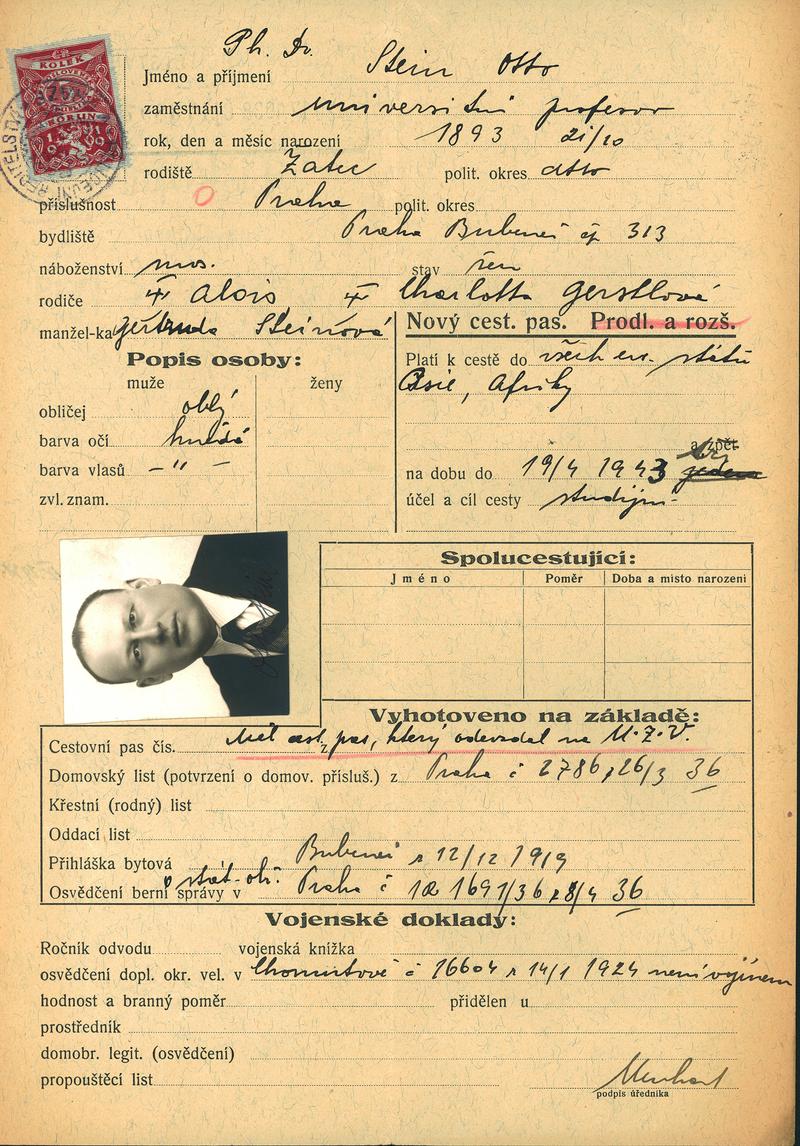 KOLEK
Ph. Dr.
Jméno a příjmení Stein Otto
zaměstnání universitní profesor
rok, den a měsíc narození 1893 21/10
rodiště Žatec polit. okres dtto
příslušnost Praha polit. okres
bydliště Praha Bubeneč čp 313
náboženství mos. stav žen
rodiče Alois, Charlotta Gerstlová
manžel-ka Gertruda Steinová
Nový cest. pas. Prodl. a rozš.
Popis osoby:
muže ženy
Platí k cestě do všech ev. států
Asie, Afriky
obličej oblý
barva očí hnědé
barva vlasů –"–
zvl. znam.
a zpět
na dobu do 19/4 1943
účel a cíl cesty studijní
Spolucestující:
Jméno Poměr Doba a místo narození
Vyhotoveno na základě:
Cestovní pas čís. Měl cest. pas, který odevzdal na M.Z.V.
Domovský list (potvrzení o domov. přísluš.) z Praha č 2786, 26/3 36
Křestní (rodný) list
Oddací list
Přihláška bytová Bubeneč z 12/12 1919
o stát. obč.
Osvědčení berní správy v Praha č 1691/36 z 8/4 36
Vojenské doklady:
Ročník odvodu vojenská knížka
osvědčení dopl. okr. vel. v Chomutově č 16604 z 14/1 1924 není vojínem
hodnost a branný poměr přidělen u
prostředník
domobr. legit. (osvědčení)
propouštěcí list
podpis úředníka